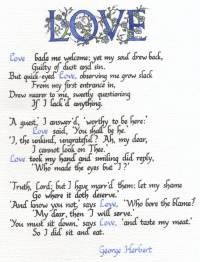 LOVE
Love bade me welcome; yet my soul drew back,
Guilty of dust and sin.
But quick-eyed Love, observing me grow slack
From my first entrance in,
Drew nearer to me, sweetly questioning
If I lack'd anything.
'A guest,' I answer'd, 'worthy to be here:'
Love said, 'You shall be he.'
'I, the unkind, ungrateful? Ah, my dear,
I cannot look on Thee.'
Love took my hand and smiling did reply,
'Who made the eyes but I?'
'Truth, Lord; but I have marr'd them: let my shame
Go where it doth deserve.'
'And know you not,' says Love, 'Who bore the blame?'
'My dear, then I will serve.'
'You must sit down,' says Love, 'and taste my meat.'
So I did sit and eat.
George Herbert